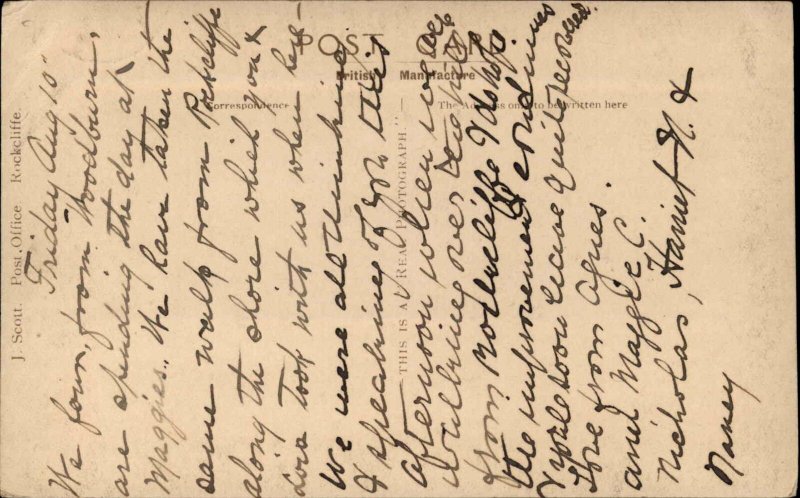 POST CARD
British Manufacture
Correspondence
The Address only to be written here
J. Scott. Post Office Rockcliffe.
THIS IS A REAL PHOTOGRAPH
Friday Aug 10
We four, from Woodburn,
are spending the day at
Maggies. We have taken the
same walk from Rockcliffe
along the shore which you &
Lora took with us when here –
We were all thinking
& speaking of you this
afternoon when we were
walking over to here
from Rockcliffe I hope
the improvement continues
& you'll soon be quite recovered.
Love from Agnes.
and Maggie C.
Nicholas, Harriet N. &
Nancy